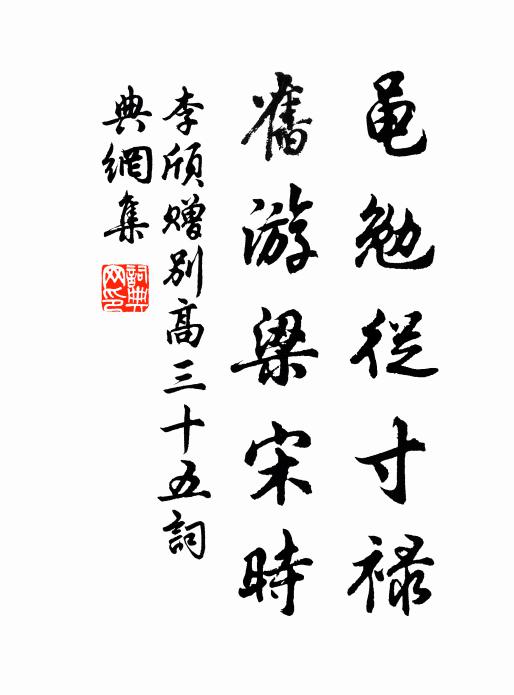 黽勉從寸祿
舊游梁宋時
李頎贈別高三十五詞
典網集
詞典
网印